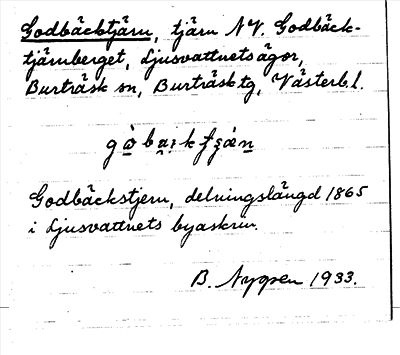 Godbäcktjärn, tjärn NV. Godbäck-
tjärnberget, Ljusvattnets ägor,
Burträsk sn, Burträsk tg, Västerb.l.
Godbäckstjern, delningslängd 1865
i Ljusvattnets byaskriv.
B. Nygren 1933.